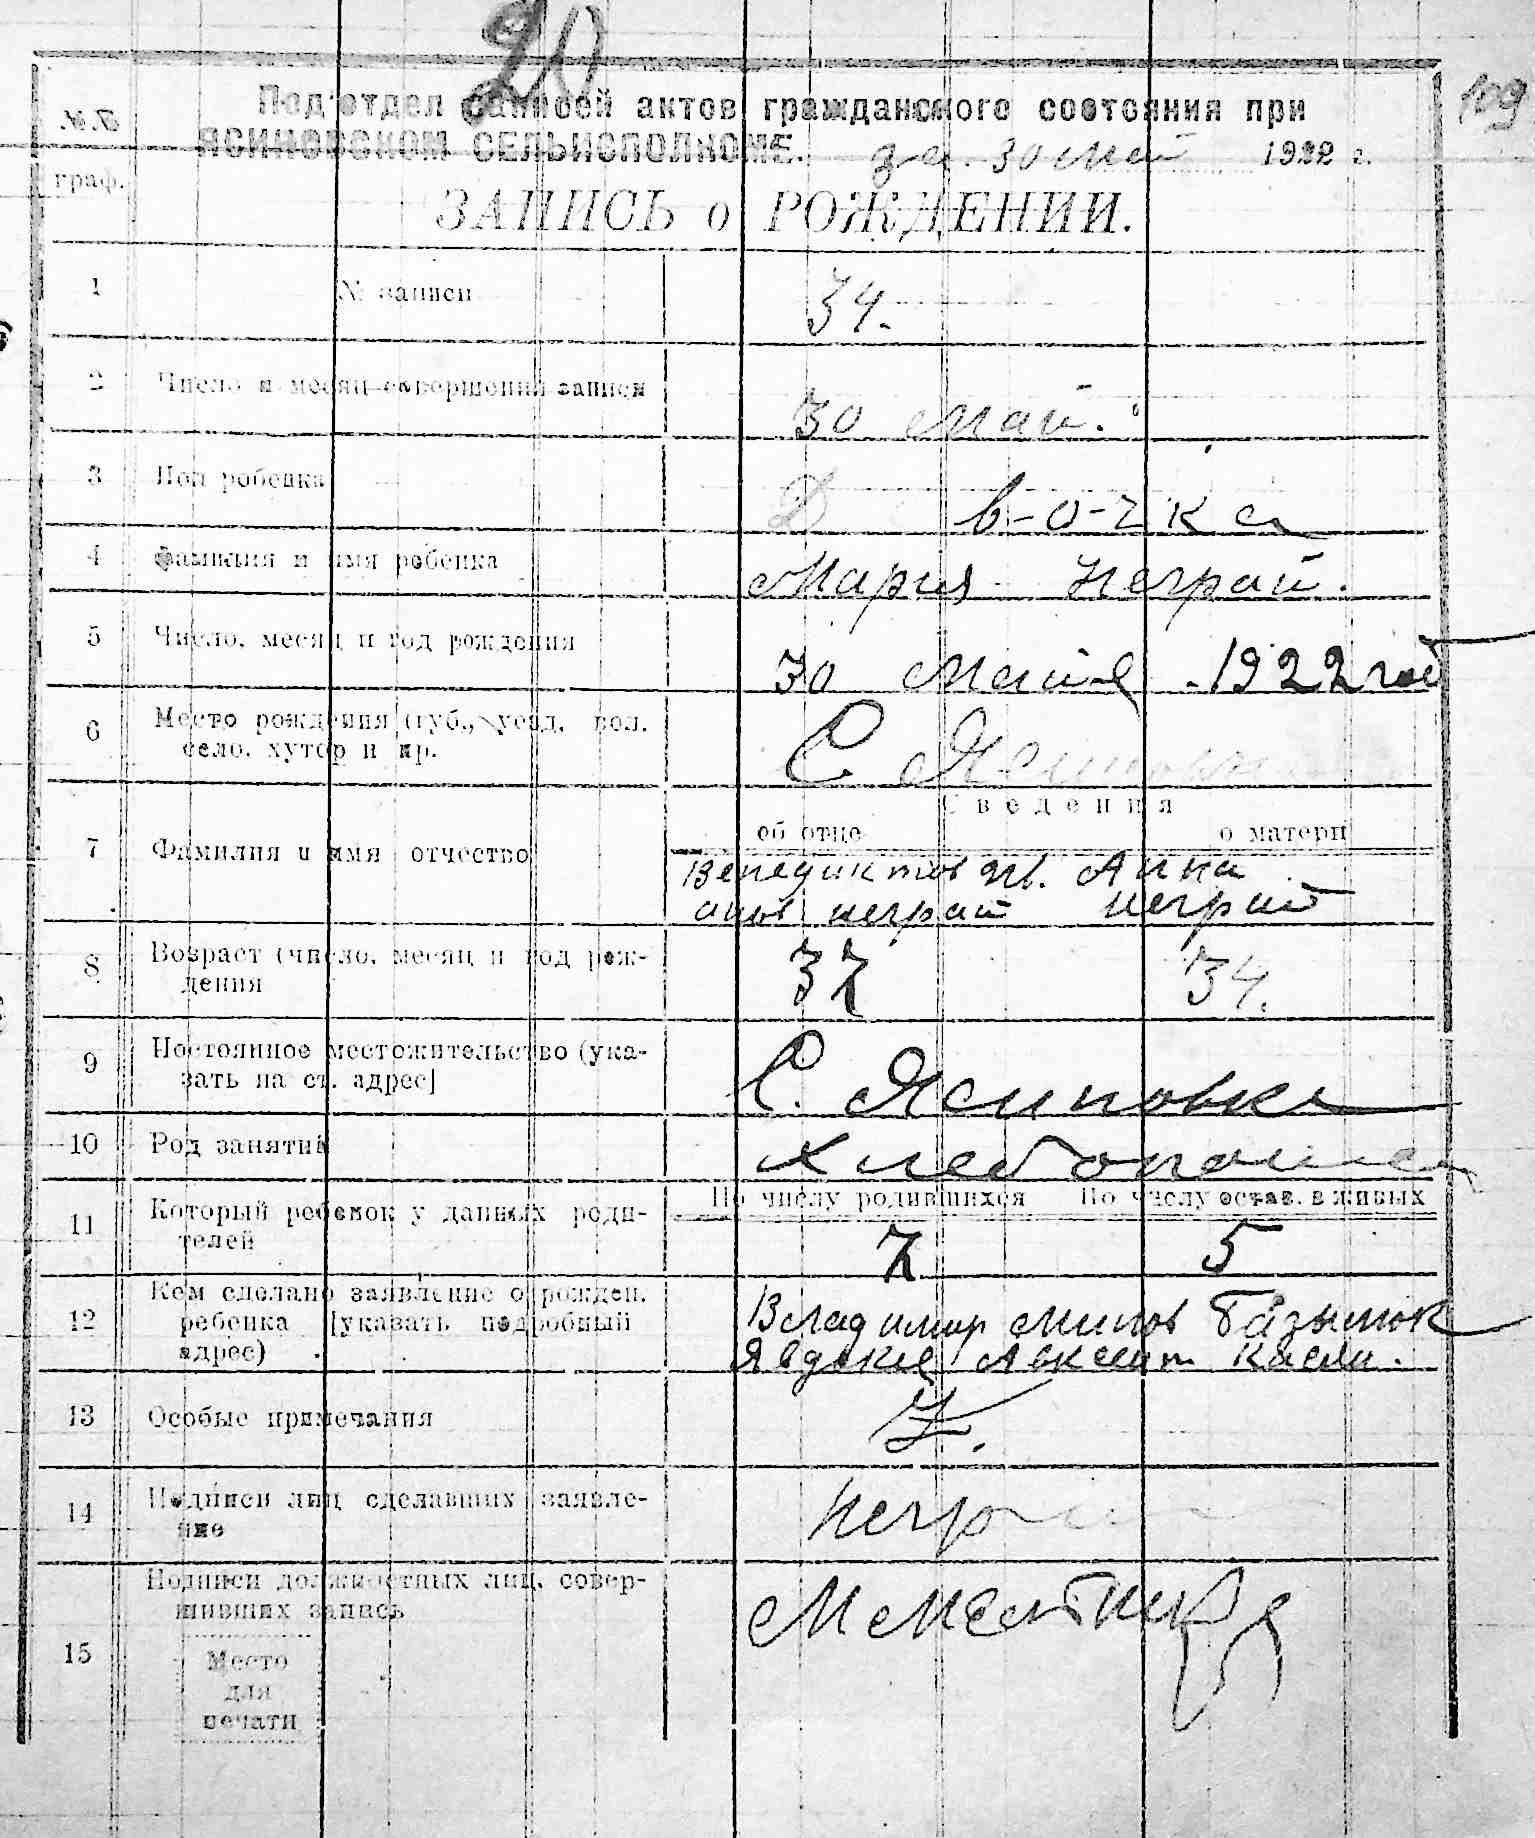 20
109
№.№
граф.
Под'отдел записей актов гражданского состояния при
ЯСИНОВСКОМ СЕЛЬИСПОЛКОМЕ. за 30 май 1922 г.
ЗАПИСЬ о РОЖДЕНИИ.
1 № записи 34.
2 Число и месяц совершения записи 30 май.
3 Пол ребенка Д в-о-чка
4 Фамилия и имя ребенка Мария Неграй.
5 Число, месяц и год рождения 30 мая 1922 год
6 Место рождения (губ., уезд, вол.
село, хутор и пр. С Ясиновка
Сведения
об отце о матери
7 Фамилия и имя отчество
Венедиктов Ив. Анна
анов неграй неграй
8 Возраст (число, месяц и год рож-
дения 37 34.
9 Постоянное местожительство (ука-
зать на ст. адрес] С. Ясиновка
10 Род занятий Хлебопашец
По числу родившихся По числу остав. в живых
11 Который ребенок у данных роди-
телей 7 5
12 Кем сделано заявление о рожден.
ребенка [указать подробный
адрес)
Владимир
Явдокие Авксент
13 Особые примечания
14 Подписи лиц сделавших заявле-
ние Неграй
15 Подписи должностных лиц, совер-
шивших запись
Место
для
печати